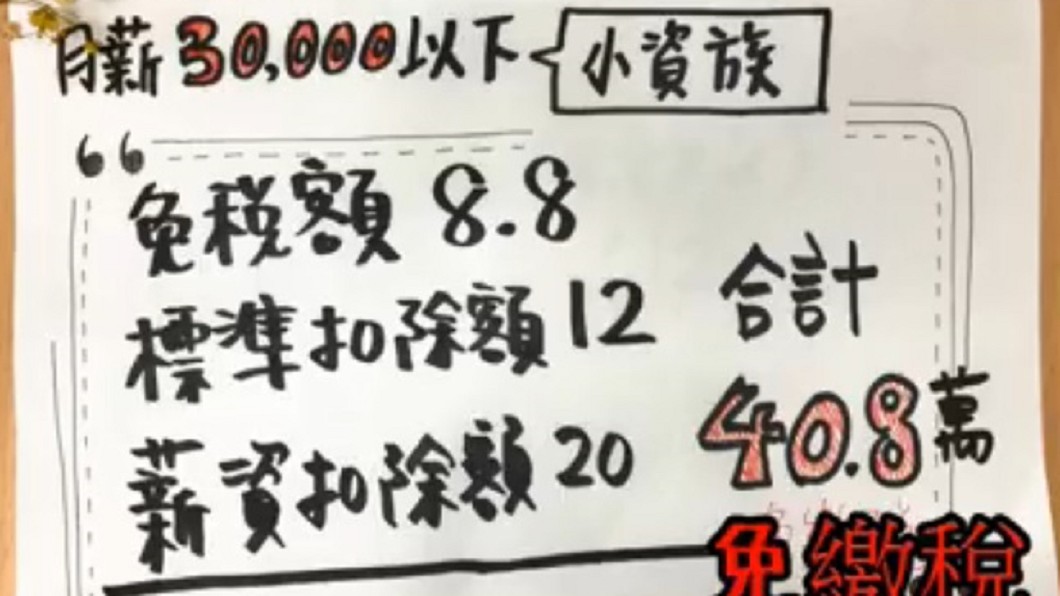 月薪30,000以下
小資族
免稅額 8.8
標準扣除額 12
薪資扣除額 20
合計
40.8萬
免繳稅